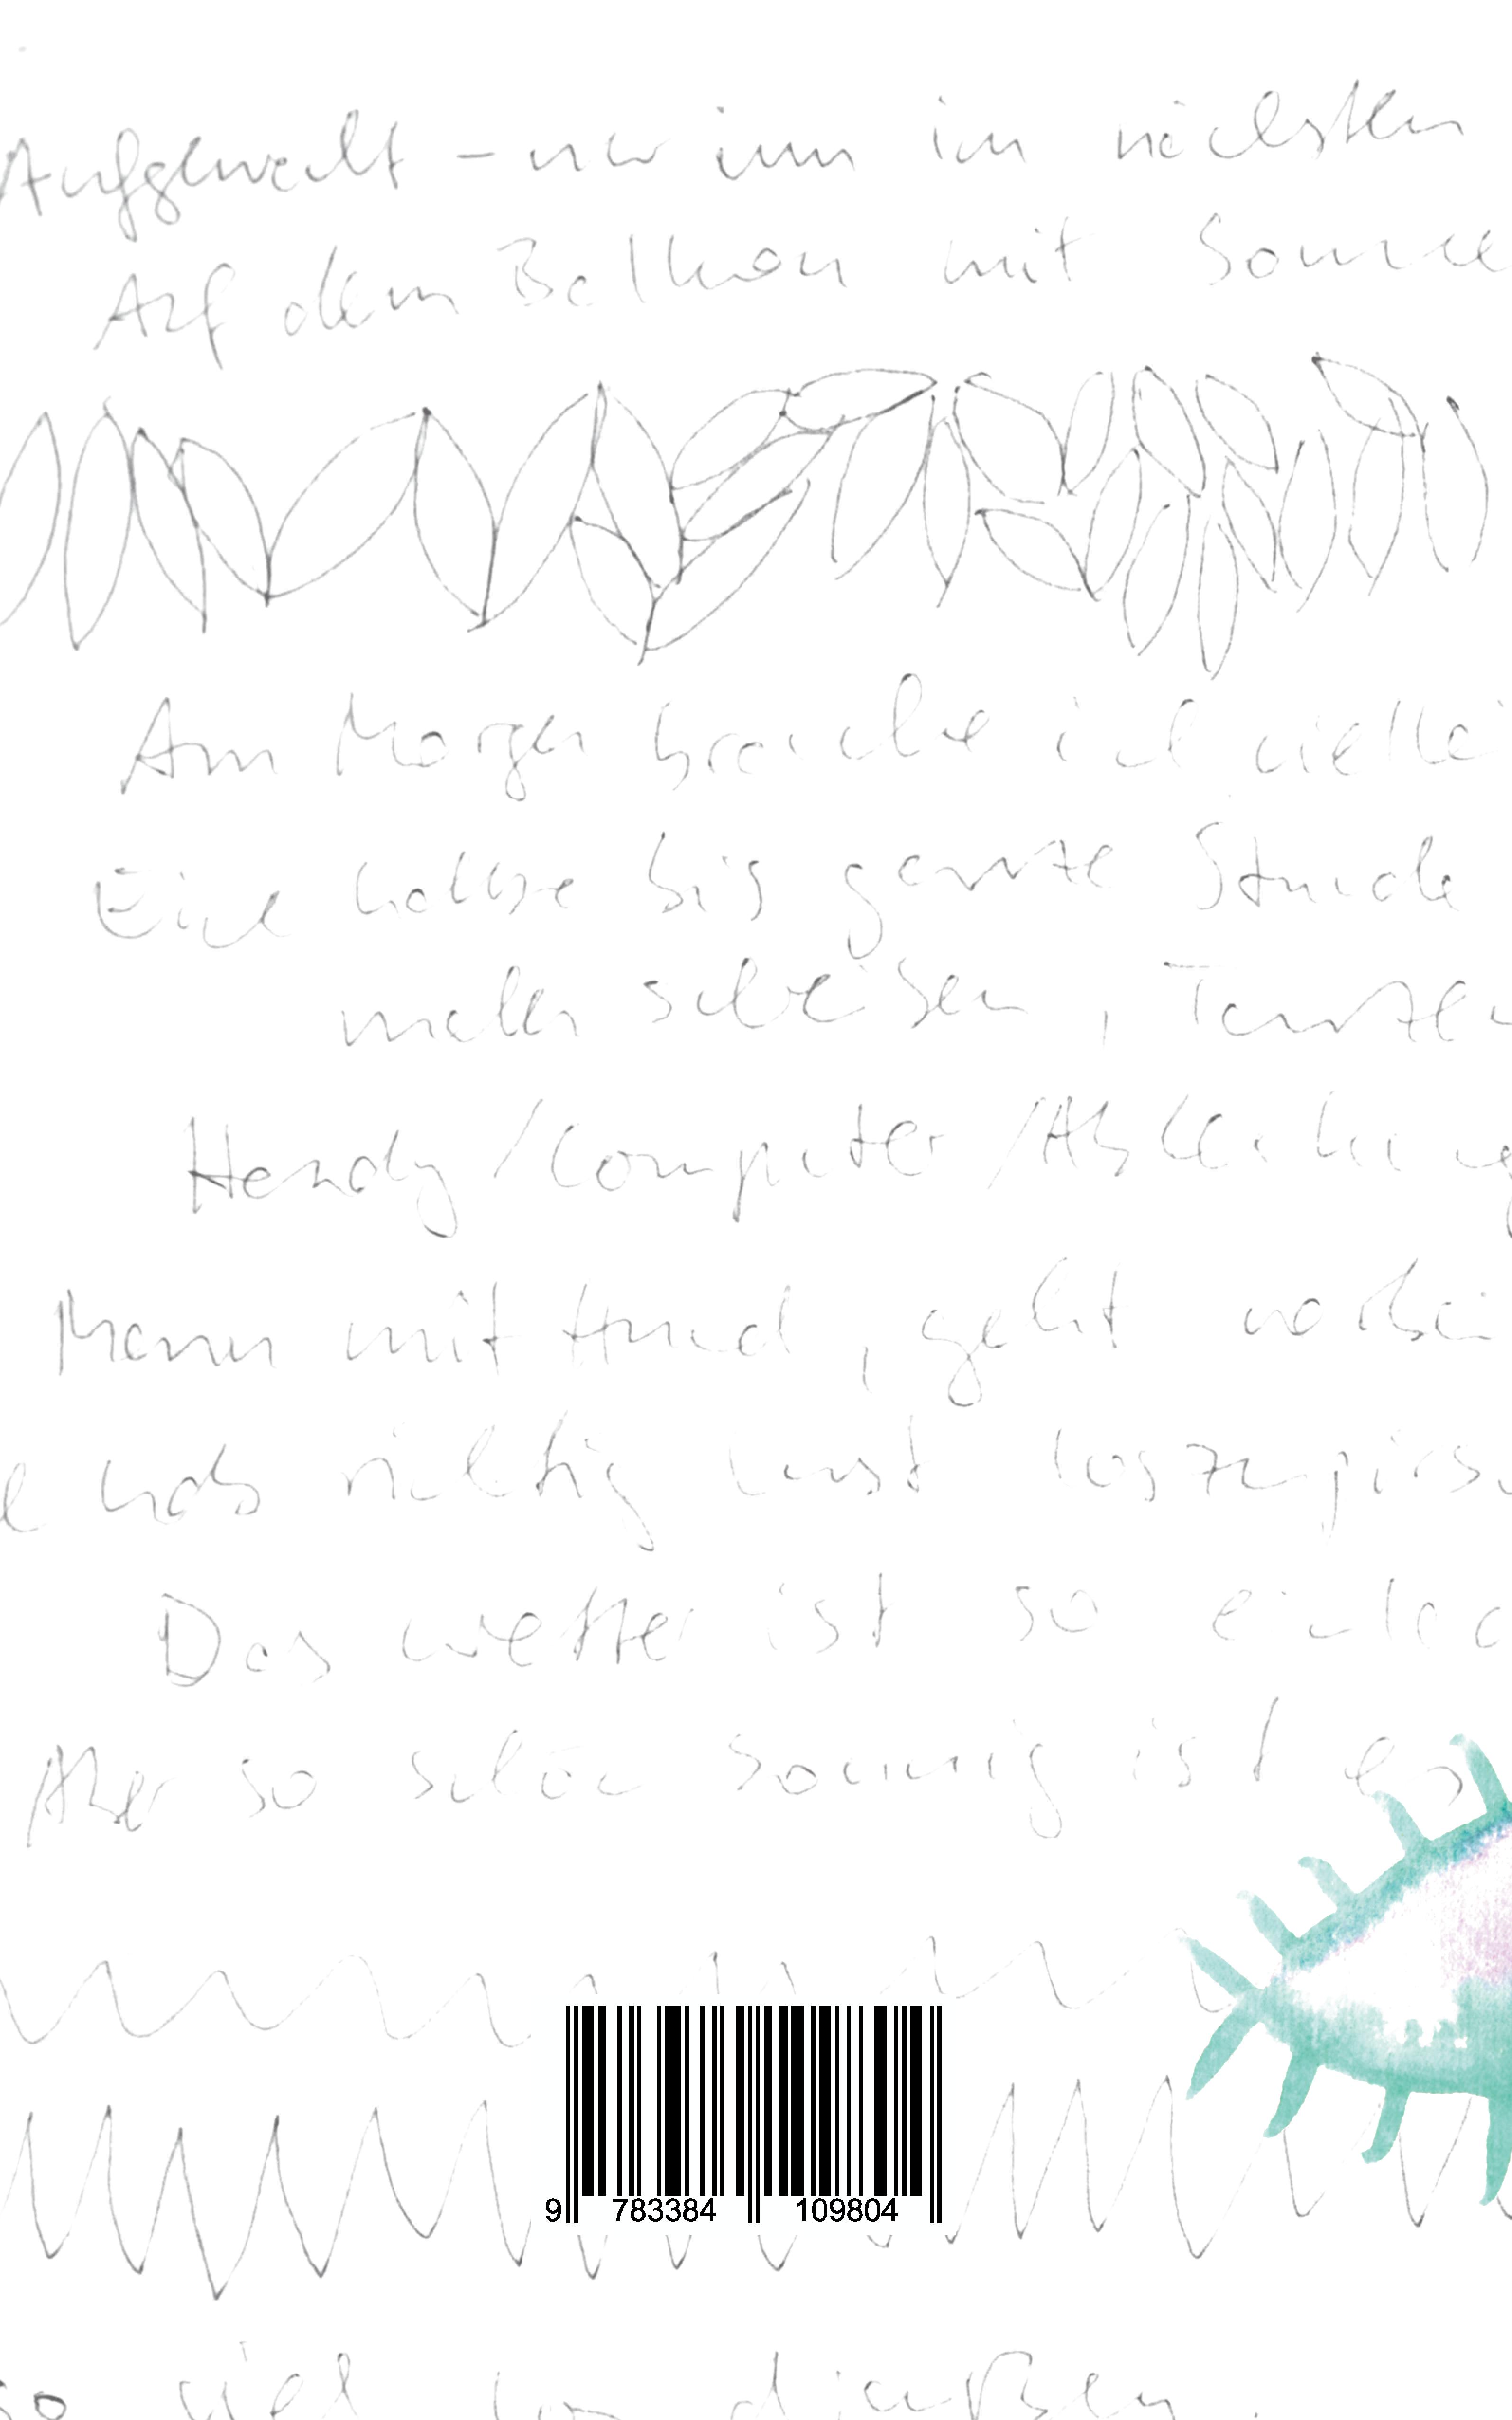 Aufgewacht - nur im nächsten
Auf dem Balkon mit Sonne
Am Morgen brauche ich viellei
Eine halbe bis ganze Stunde
malen schreiben, Tanzen
Handy/Computer/Ablenkung
Mann mit Hund, geht vorbei
hab richtig Lust loszupirs
Das Wetter ist so einlad
Aber so schön sonnig ist es
9 783384 109804
so viel von draußen.